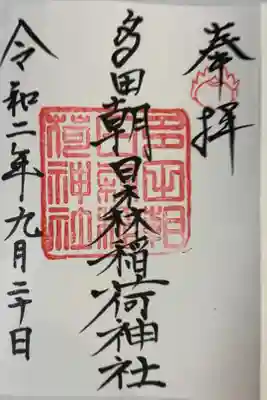 奉拝
多田朝日森稲荷神社
令和二年九月二十日
多田朝
日森稲
荷神社